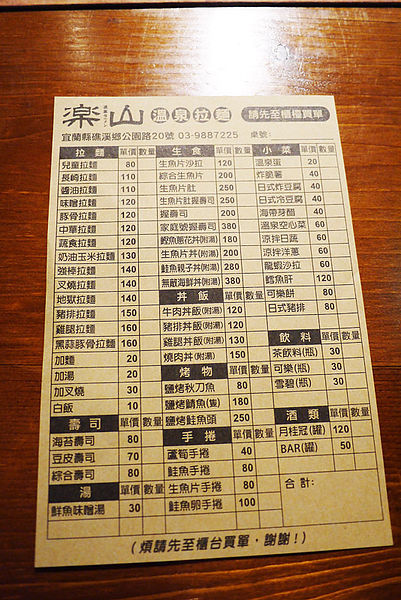 楽山 溫泉拉麵 請先至櫃檯買單
宜蘭縣礁溪鄉公園路20號 03-9887225 桌號:
拉麵 單價 數量
兒童拉麵 80
長崎拉麵 110
醬油拉麵 110
味噌拉麵 120
豚骨拉麵 120
中華拉麵 120
蔬食拉麵 120
奶油玉米拉麵 130
強棒拉麵 140
叉燒拉麵 140
地獄拉麵 140
豬排拉麵 150
雞腿拉麵 160
黑蒜豚骨拉麵 160
加麵 20
加湯 20
加叉燒 30
白飯 10
壽司 單價 數量
海苔壽司 80
豆皮壽司 70
綜合壽司 80
湯 單價 數量
鮮魚味噌湯 30
生食 單價 數量
生魚片沙拉 120
綜合生魚片 200
生魚片肚 250
生魚片肚握壽司 250
握壽司 200
家庭號握壽司 380
鮭魚蔥花丼(附湯) 180
生魚片丼(附湯) 200
鮭魚親子丼(附湯) 280
無敵海鮮丼(附湯) 380
丼飯 單價 數量
牛肉丼飯(附湯) 120
豬排丼飯(附湯) 120
雞腿丼飯(附湯) 130
燒肉丼(附湯) 150
烤物 單價 數量
鹽烤秋刀魚 80
鹽烤鯖魚(隻) 180
鹽烤鮭魚頭 250
手捲 單價 數量
蘆筍手捲 40
鮭魚手捲 80
生魚片手捲 80
鮭魚卵手捲 100
小菜 單價 數量
溫泉蛋 20
炸脆薯 40
日式炸豆腐 40
日式冷豆腐 40
海帶芽醋 40
溫泉空心菜 60
涼拌日蔬 60
涼拌洋蔥 60
龍蝦沙拉 60
鱈魚肝 120
可樂餅 80
日式豬排 80
飲料 單價 數量
茶飲料(瓶) 30
可樂(瓶) 30
雪碧(瓶) 30
酒類 單價 數量
月桂冠(罐) 120
BAR(罐) 50
合計:
(煩請先至櫃台買單,謝謝!)